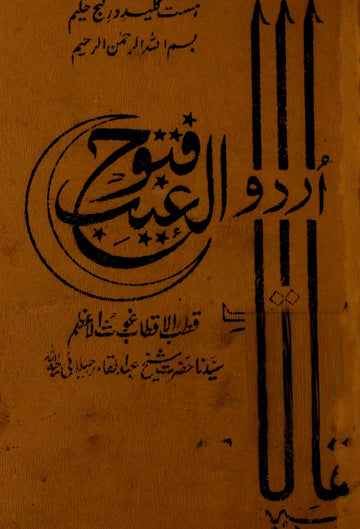 ہست کلید در گنج حکیم
بسم اللہ الرحمٰن الرحیم
فتوح
الغیب
اُردو
قطب الاقطاب غوث الاعظم
سیّدنا حضرت شیخ عبدالقادر جیلانی رحمۃ اللہ